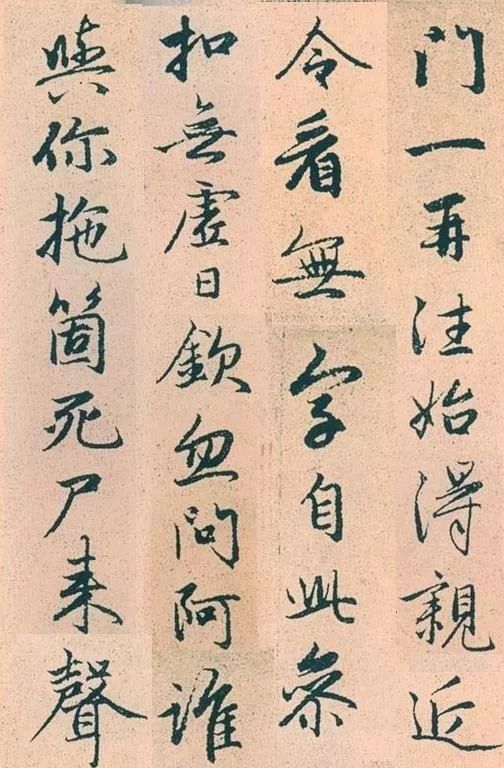 門一再往始得親近
令看無字自此參
扣無虛日欽忽問阿誰
與你拖箇死尸来聲